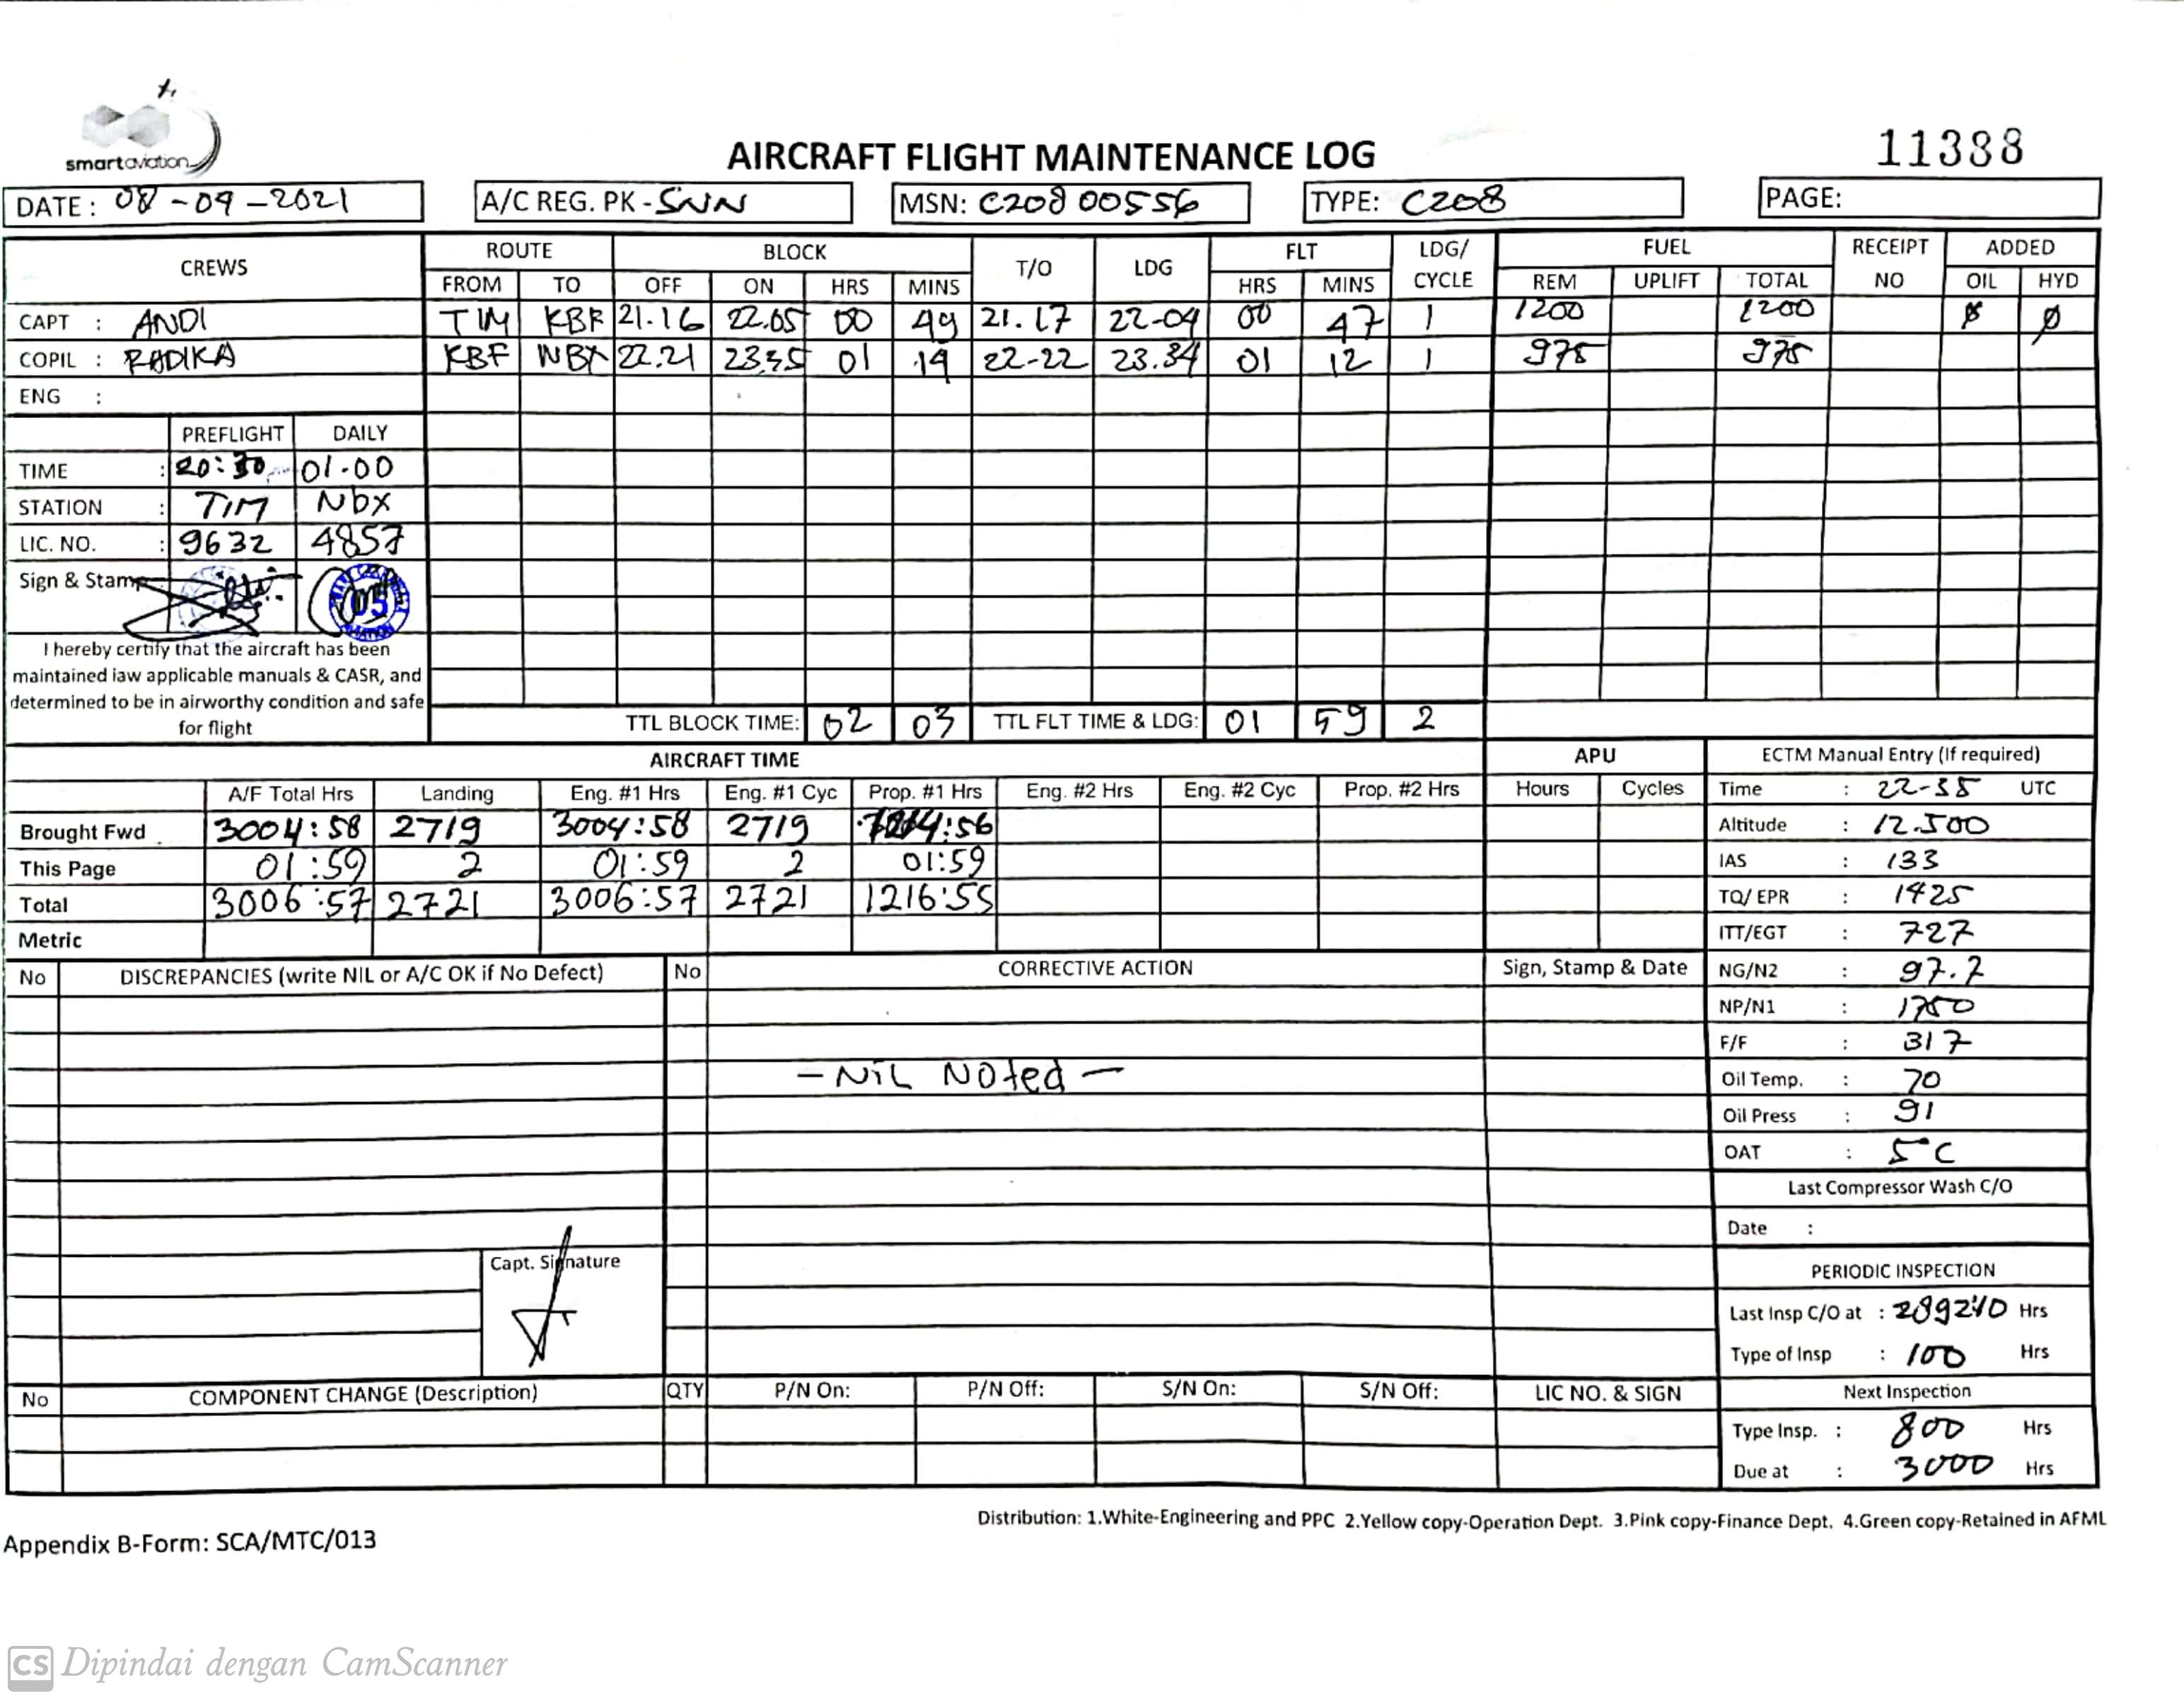 smartaviation
AIRCRAFT FLIGHT MAINTENANCE LOG
11388
DATE : 08-09-2021 A/C REG. PK - SNN MSN: C208 00556 TYPE: C208 PAGE:
CREWS ROUTE BLOCK T/O LDG FLT LDG/ CYCLE FUEL RECEIPT NO ADDED
FROM TO OFF ON HRS MINS HRS MINS REM UPLIFT TOTAL OIL HYD
CAPT : ANDI TIM KBF 21.16 22.05 00 49 21.17 22-04 00 47 1 1200 1200 ø ø
COPIL : RADIKA KBF NBX 22.21 23.35 01 14 22-22 23.34 01 12 1 975 975
ENG :
PREFLIGHT DAILY
TIME : 20:30 01.00
STATION : TIM Nbx
LIC. NO. : 9632 4857
Sign & Stamp
05
I hereby certify that the aircraft has been
maintained iaw applicable manuals & CASR, and
determined to be in airworthy condition and safe
for flight
TTL BLOCK TIME: 02 03 TTL FLT TIME & LDG: 01 59 2
AIRCRAFT TIME APU ECTM Manual Entry (If required)
A/F Total Hrs Landing Eng. #1 Hrs Eng. #1 Cyc Prop. #1 Hrs Eng. #2 Hrs Eng. #2 Cyc Prop. #2 Hrs Hours Cycles Time : 22-55 UTC
Brought Fwd 3004:58 2719 3004:58 2719 Altitude : 12.500
This Page 01:59 2 01:59 2 01:59 IAS : 133
Total 3006:57 2721 3006:57 2721 1216:55 TQ/ EPR : 1425
Metric ITT/EGT : 727
No DISCREPANCIES (write NIL or A/C OK if No Defect) No CORRECTIVE ACTION Sign, Stamp & Date NG/N2 : 97.7
NP/N1 : 1750
F/F : 317
- NiL NOted - Oil Temp. : 70
Oil Press : 91
OAT : 5°C
Last Compressor Wash C/O
Date :
Capt. Signature
PERIODIC INSPECTION
Last Insp C/O at : Hrs
Type of Insp : 100 Hrs
No COMPONENT CHANGE (Description) QTY P/N On: P/N Off: S/N On: S/N Off: LIC NO. & SIGN Next Inspection
Type Insp. : 800 Hrs
Due at : 3000 Hrs
Distribution: 1.White-Engineering and PPC 2.Yellow copy-Operation Dept. 3.Pink copy-Finance Dept. 4.Green copy-Retained in AFML
Appendix B-Form: SCA/MTC/013
CS Dipindai dengan CamScanner